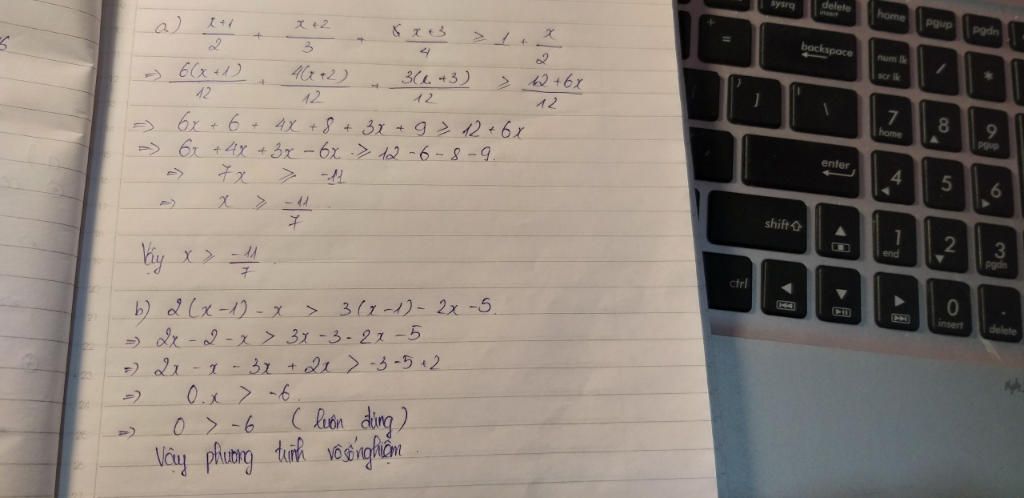 a) \frac{x+1}{2} + \frac{x+2}{3} + \frac{x+3}{4} ≥ 1 + \frac{x}{2}
=> \frac{6(x+1)}{12} + \frac{4(x+2)}{12} + \frac{3(x+3)}{12} ≥ \frac{12+6x}{12}
=> 6x + 6 + 4x + 8 + 3x + 9 ≥ 12 + 6x
=> 6x + 4x + 3x - 6x ≥ 12 - 6 - 8 - 9.
=> 7x ≥ -11
=> x ≥ \frac{-11}{7}.
Vậy x ≥ \frac{-11}{7}.
b) 2(x-1) - x > 3(x-1) - 2x - 5.
=> 2x - 2 - x > 3x - 3 - 2x - 5
=> 2x - x - 3x + 2x > -3 - 5 + 2
=> 0.x > -6.
=> 0 > -6 (luôn đúng)
Vậy phương trình vô số nghiệm.
sysrq delete insert home pgup pgdn
+ = backspace num lk scr lk / *
} ] | \ 7 home 8 9 pgup
enter 4 5 6
shift 1 end 2 3 pgdn
ctrl 0 insert . delete